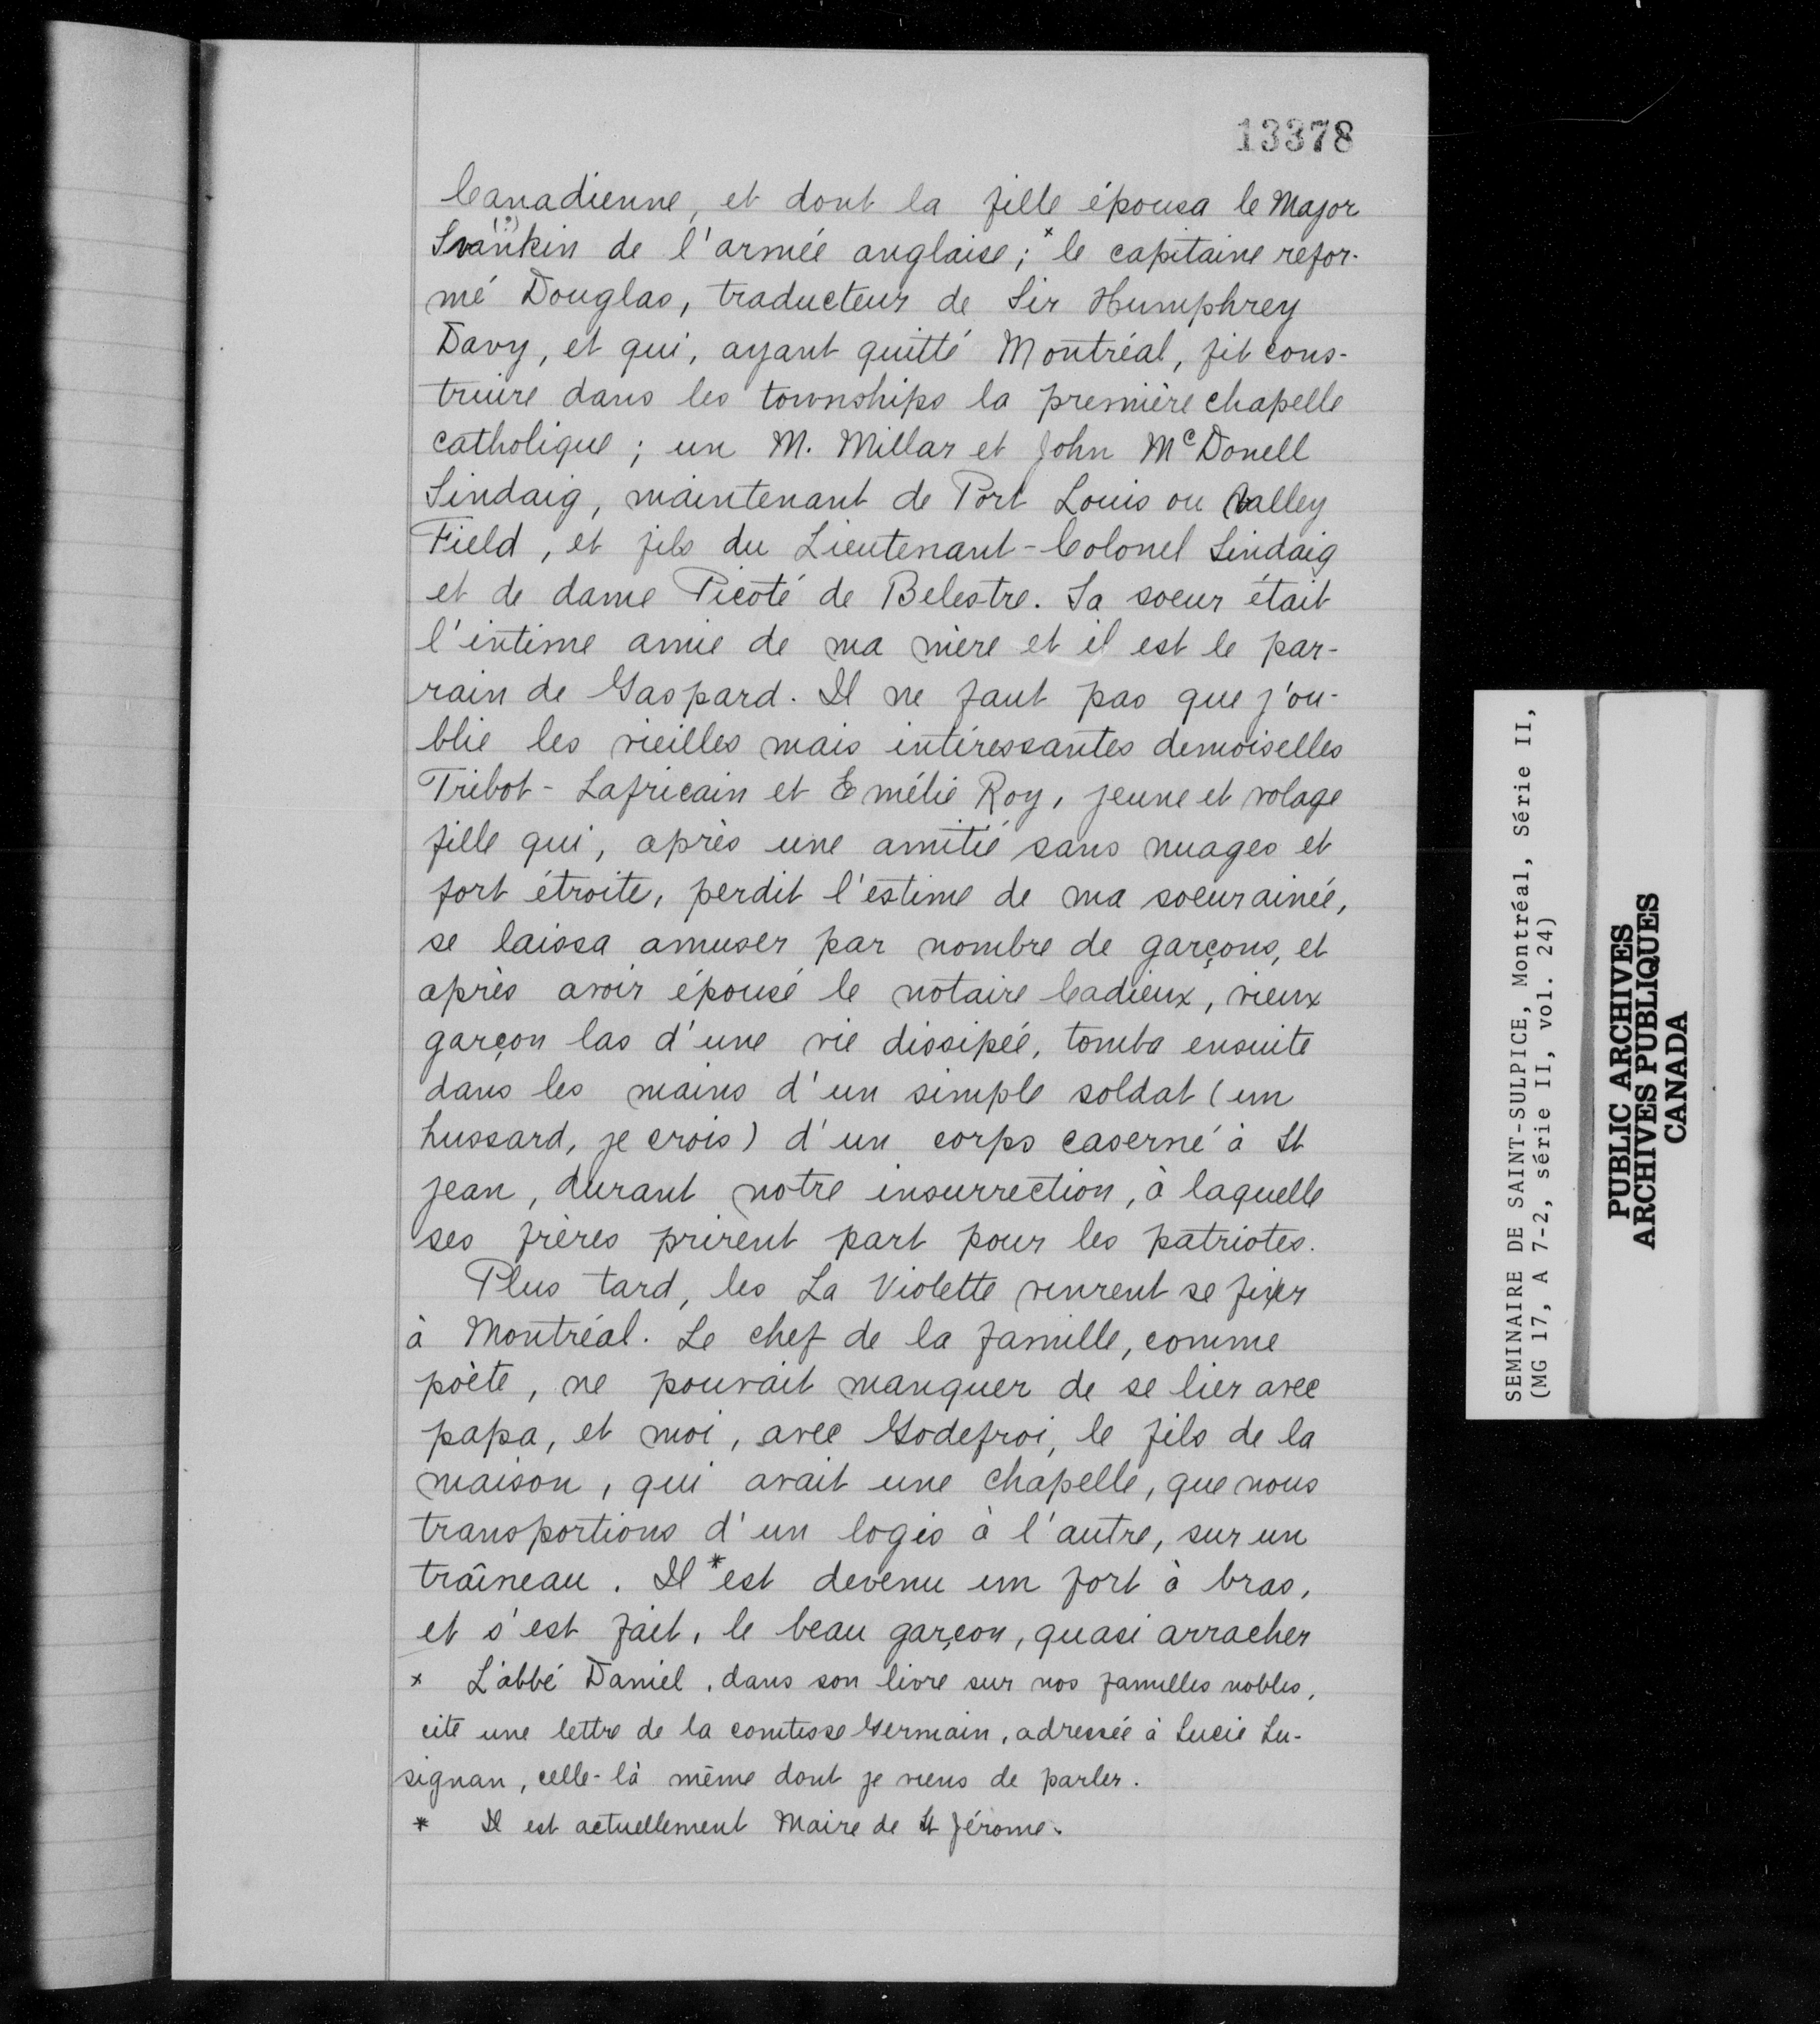 13378
Canadienne, et dont la fille épousa le Major
(?)
Svankin de l'armée anglaise; x le capitaine refor-
mé Douglas, traducteur de Sir Humphrey
Davy, et qui, ayant quitté Montréal, fit cons-
truire dans les townships la première chapelle
catholique; un M. Millar et John McDonell
Sindaig, maintenant de Port Louis ou Valley
Field, et fils du Lieutenant-Colonel Sindaig
et de dame Picoté de Belestre. Sa soeur était
l'intime amie de ma mère et il est le par-
rain de Gaspard. Il ne faut pas que j'ou-
blie les vieilles mais intéressantes demoiselles
Tribot-Lafricain et Emélie Roy, jeune et volage
fille qui, après une amitié sans nuages et
fort étroite, perdit l'estime de ma soeur ainée,
se laissa amuser par nombre de garçons, et
après avoir épousé le notaire Cadieux, vieux
garçon las d'une vie dissipée, tomba ensuite
dans les mains d'un simple soldat (un
hussard, je crois) d'un corps caserné à St
Jean, durant notre insurrection, à laquelle
ses frères prirent part pour les patriotes.
Plus tard, les La Violette vinrent se fixer
à Montréal. Le chef de la famille, comme
poète, ne pouvait manquer de se lier avec
papa, et moi, avec Godefroi, le fils de la
maison, qui avait une chapelle, que nous
transportions d'un logis à l'autre, sur un
traîneau. Il * est devenu un fort à bras,
et s'est fait, le beau garçon, quasi arracher
x L'abbé Daniel, dans son livre sur nos familles nobles,
cite une lettre de la comtesse Germain, adressée à Lucie Lu-
signan, celle-là même dont je viens de parler.
* Il est actuellement Maire de St Jérome.
SEMINAIRE DE SAINT-SULPICE, Montréal, Série II,
(MG 17, A 7-2, série II, vol. 24)
PUBLIC ARCHIVES
ARCHIVES PUBLIQUES
CANADA